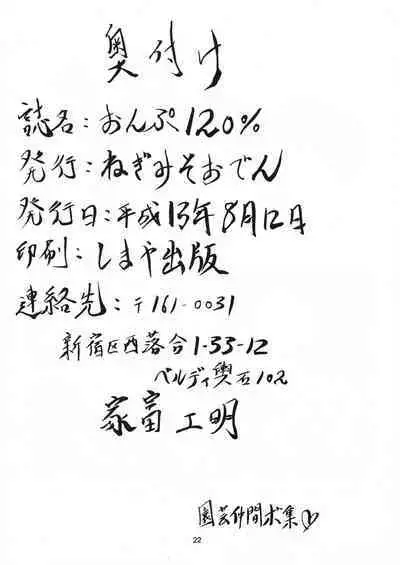 奥付け
誌名：おんぷ120%
発行：ねぎみそおでん
発行日：平成13年8月12日
印刷：しまや出版
連絡先：〒161-0031
新宿区西落合1-33-12
ベルディ輿石102
家富工明
園芸仲間求集
22